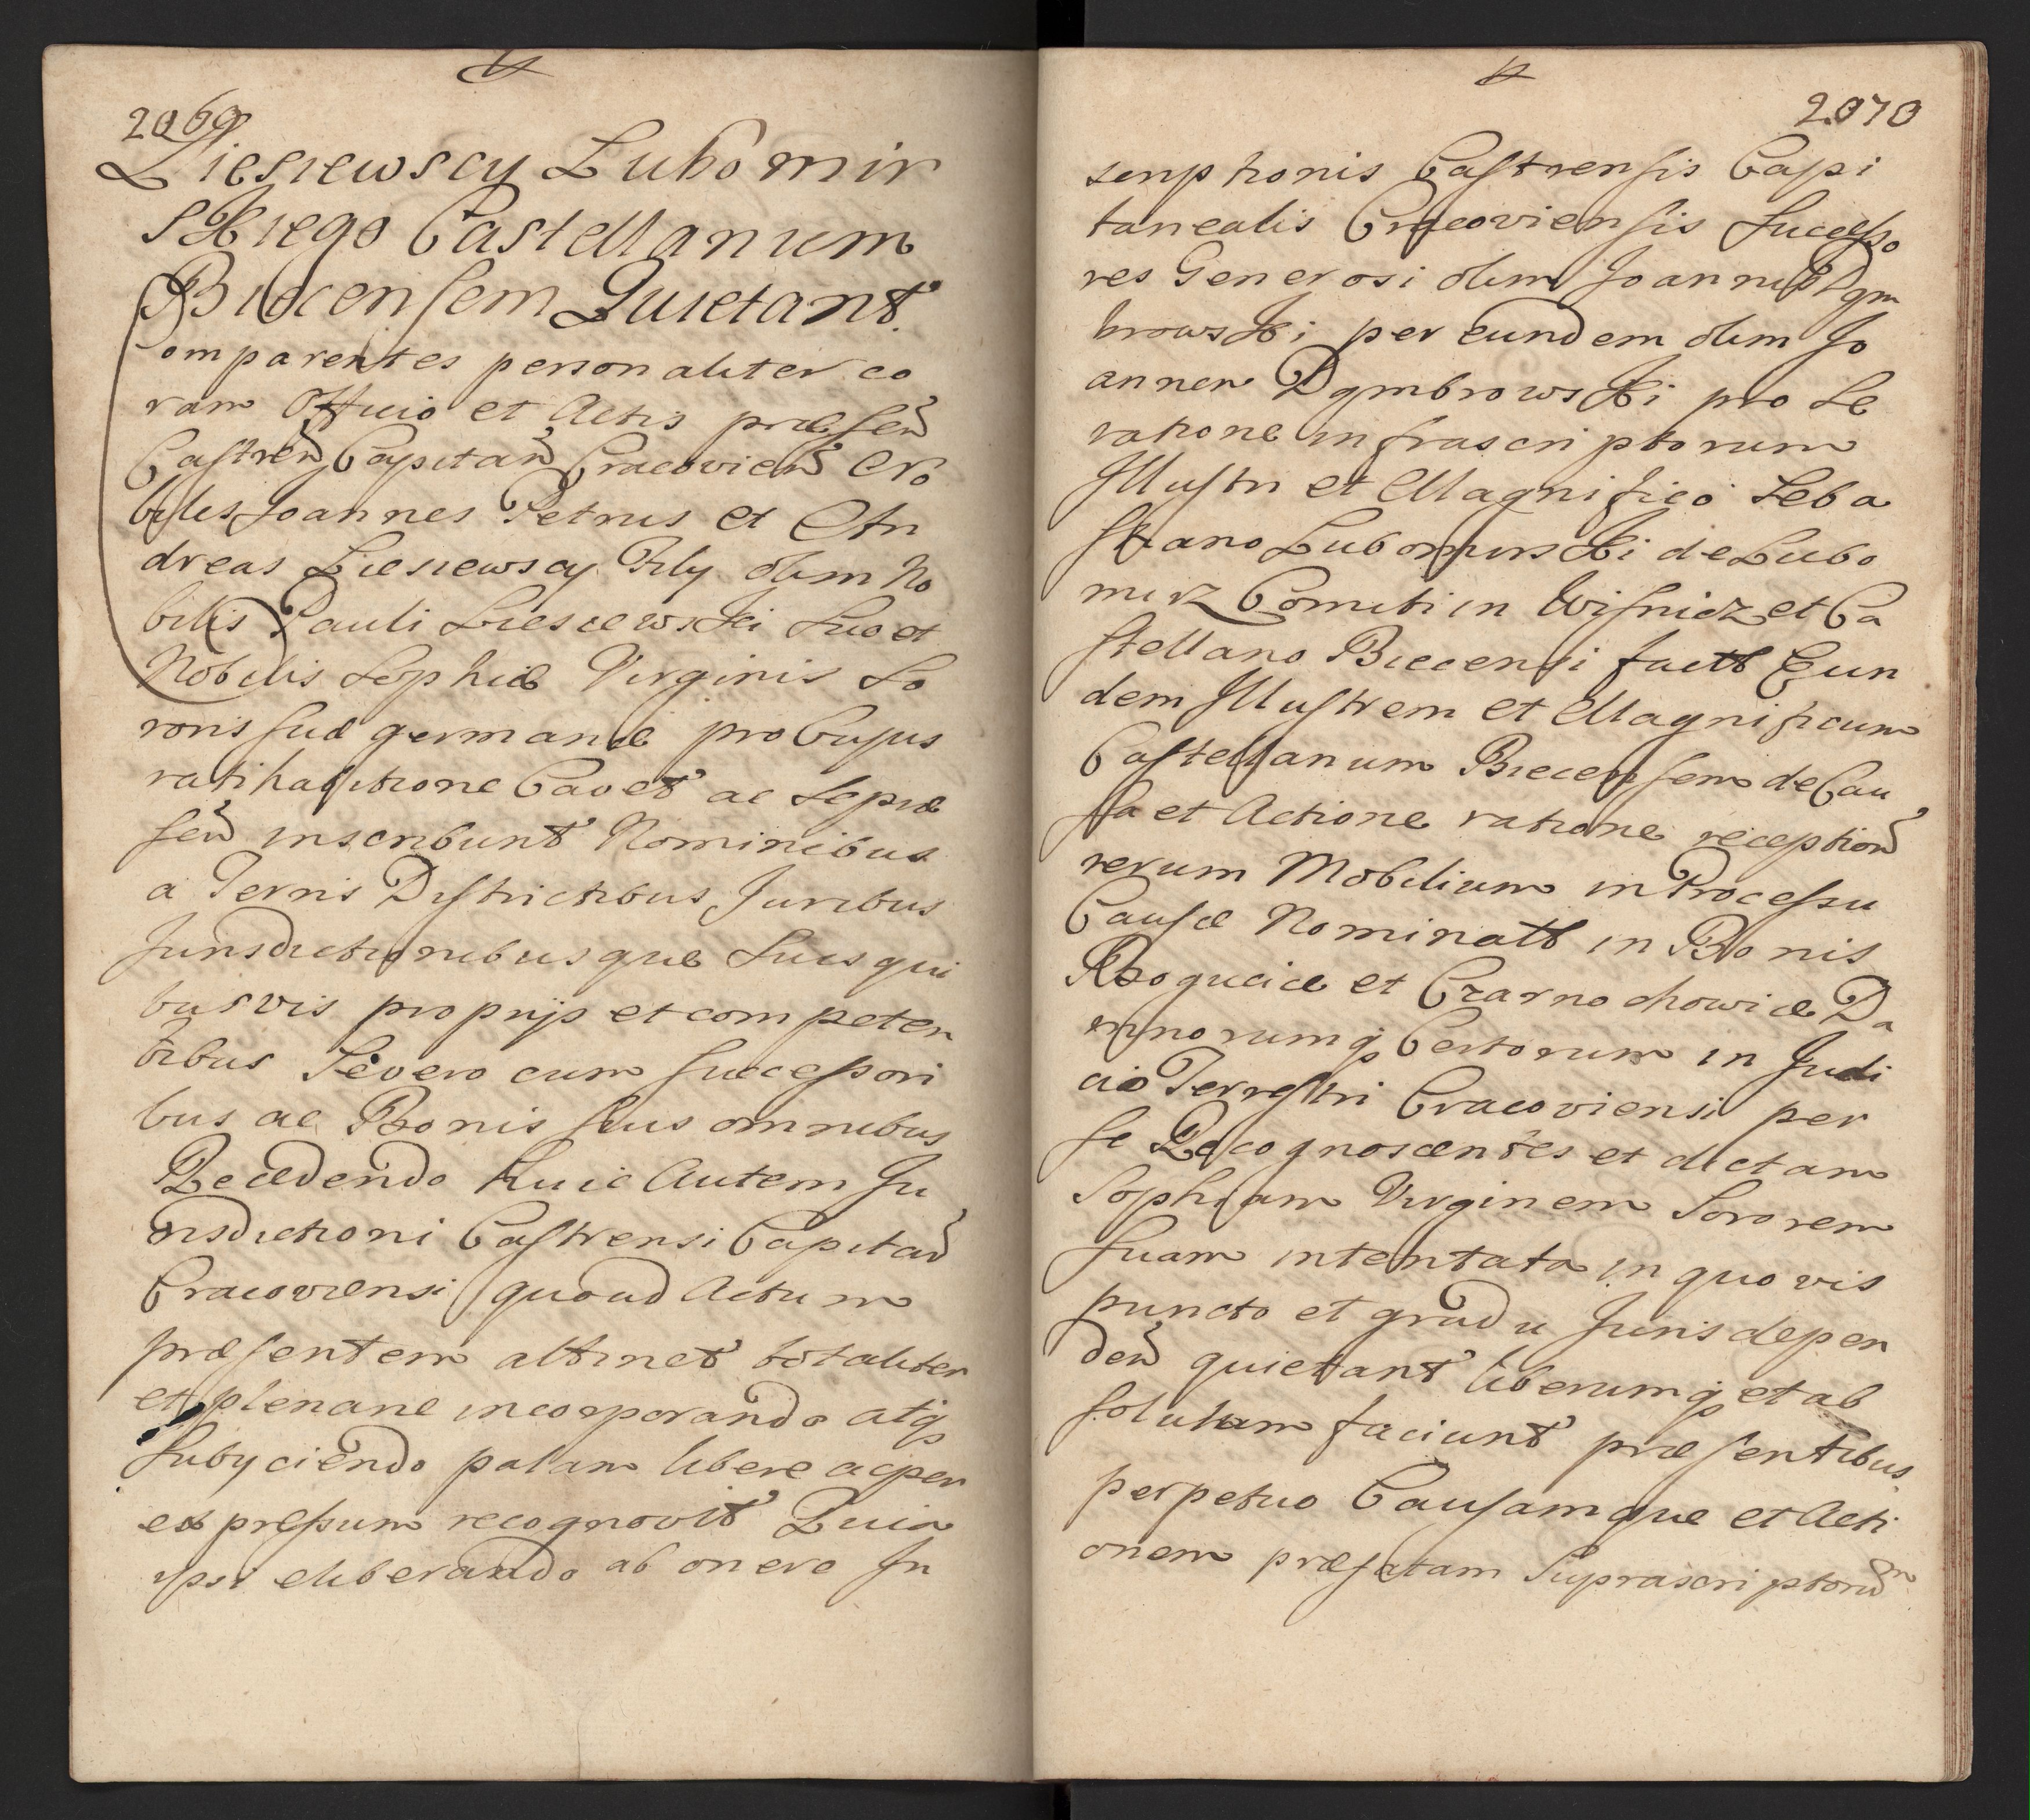 2069
Liesiewscy Lubomir
skiego Castellanum
Biecensem Quietant.
Comparentes personaliter co
ram Officio et Actis præsen̄
Castren̄ Capitan̄ Cracovien̄ No
biles Joannes Petrus et An
dreas Liesiewscy Filij olim No
bilis Pauli Liesiewski Suo et
Nobilis Sophiæ Virginis So
roris suæ germanæ pro Cujus
ratihabitione Cavet ac se præ
sen̄ inscribunt Nominibus
a Terris Districtibus Juribus
Jurisdictionibusque Suis qui
busvis proprijs et competen
tibus Se vero cum successori
bus ac Bonis suis omnibus
Recedendo huic Autem Ju
risdictioni Castrensi Capitan̄
Cracoviensi quoad Actum
præsentem attinet totaliter
et plenarie incorporando atq̃
Subyciendo palam libere ac per
expressum recognovit Quia
ipsi eliberando ab onere In
2070
scriptionis Castrensis Capi
tanealis Cracoviensis Successo
res Generosi olim Joannis Dąm
browski per eundem olim Jo
annem Dąmbrowski pro Le
vatione infrascriptorum
Illustri et Magnifico Seba
stiano Lubomirski de Lubo
mirz Comiti in Wisnicz et Ca
stellano Biecensi factæ Eun
dem Illustrem et Magnificum
Castellanum Biecensem de Cau
sa et Actione ratione reception̄
rerum Mobilium in Processu
Causæ Nominatt in Bonis
Rzoguciæ et Czarnochowicæ Da
mnorumq̃ Certorum in Judi
cio Terrestri Cracoviensi per
se Recognoscentes et dictam
Sophiam Virginem Sororem
suam intentata in quovis
puncto et gradu Juris depen
den̄ quietant liberumq̃ et ab
solutum faciunt præsentibus
perpetuo Causamque et Acti
onem præfatam Suprascriptorum